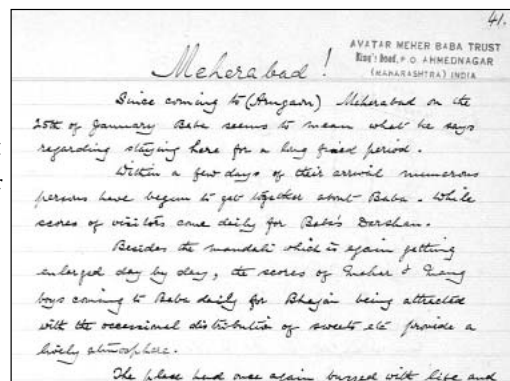 41.
AVATAR MEHER BABA TRUST
King's Road, P.O. AHMEDNAGAR
(MAHARASHTRA) INDIA
Meherabad!
Since coming to (Arangaon) Meherabad on the
25th of January Baba seems to mean what he says
regarding staying here for a long fixed period.
Within a few days of their arrival numerous
persons have begun to get together about Baba. While
scores of visitors come daily for Baba's Darshan.
Besides the mandali which is again getting
enlarged day by day, the scores of Mahar & Mang
boys coming to Baba daily for Bhajan being attracted
with the occasional distribution of sweets etc provide a
lively atmosphere.
The place had once again buzzed with life and